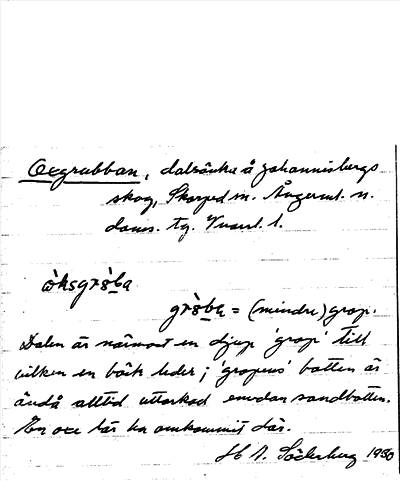 Oxgrubban, dalsänka å Johannisbergs
skog, Skorped sn. Ångerml. n.
doms. tg. Vnorrl. l.
gròba = (mindre) grop.
Dalen är närmast en djup 'grop' till
vilken en bäck leder; 'gropens' botten är
ändå alltid uttorkad emedan sandbotten.
En oxe lär ha omkommit där.
H A. Söderberg 1930